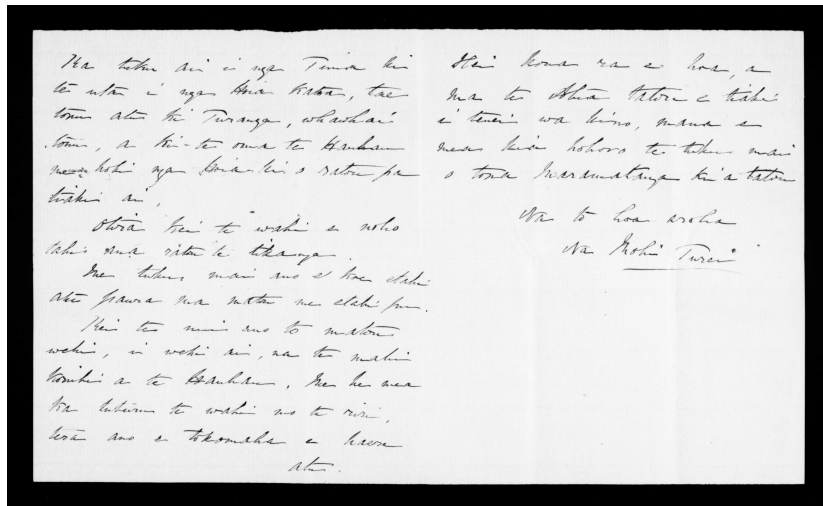 Ka tuku ai i nga Tima ki
te utu i nga Hoia katoa, tae
tonu atu ki Turanga, whawhai
tonu, a ki te oma te Hauhau
me hoki nga Hoia ki o ratou pa
tiaki ai,
Otira kei te wahi e noho
tahi ana ratou te tikanga.
Me tuku mai ano e koe etahi
atu paura ma matou me etahi pu.
Kei te nui ano to matou
wehi, i wehi ai, na te mahi
kohi a te Hauhau. Me he mea
ka tuturu te wahi mo te riri,
tera ano e tokomaha e haere
atu.
Hei kona ra e hoa, a
ma te Atua tatou e tiaki
i tenei wa kino, mana e
mea kia hohoro te tuku mai
o tona maramatanga ki a tatou
Na to hoa aroha
Na Mohi Turei